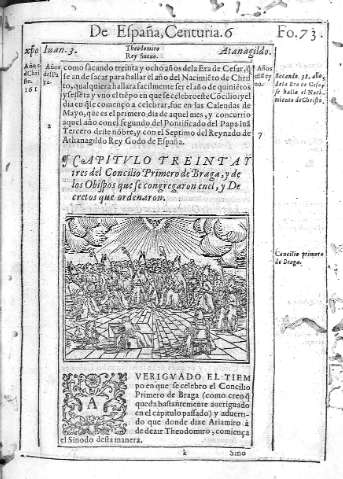 De España, Centuria. 6
Fo. 73.
Iuan. 3.
Theodomiro
Rey Sueuo.
Atanagildo.
Años
de Chri
sto.
561
como sacando treinta y ocho años de la Era de Cesar, q̃
se an de sacar para hallar el año del Nacimiẽto de Chris
to, qualquiera hallara facilmente ser el año de quiniẽtos
y sesenta y vno el tiẽpo en que se celebro este Cõcilio: y el
dia en q̃ le començo a celebrar, fue en las Calendas de
Mayo, que es el primero dia de aquel mes, y concurrio
aquel año con el segundo del Pontificado del Papa Iuã
Tercero deste nõbre, y con el Septimo del Reynado de
Athanagildo Rey Godo de España.
7
Sacando 38. años
de la Era de Cesar
se halla el Naci-
miento de Christo.
¶ CAPITVLO TREINTA Y
tres del Concilio Primero de Braga, y de
los Obispos que se congregaron en el, y De
cretos que ordenaron.
Concilio primero
de Braga.
AVERIGVADO EL TIEM
po en que se celebro el Concilio
Primero de Braga (como creo q̃
queda bastantemente aueriguado
en el capitulo passado) y aduertiẽ
do que donde dize Ariamiro à
de dezir Theodomiro, comiença
el Sinodo desta manera.
k
Sino